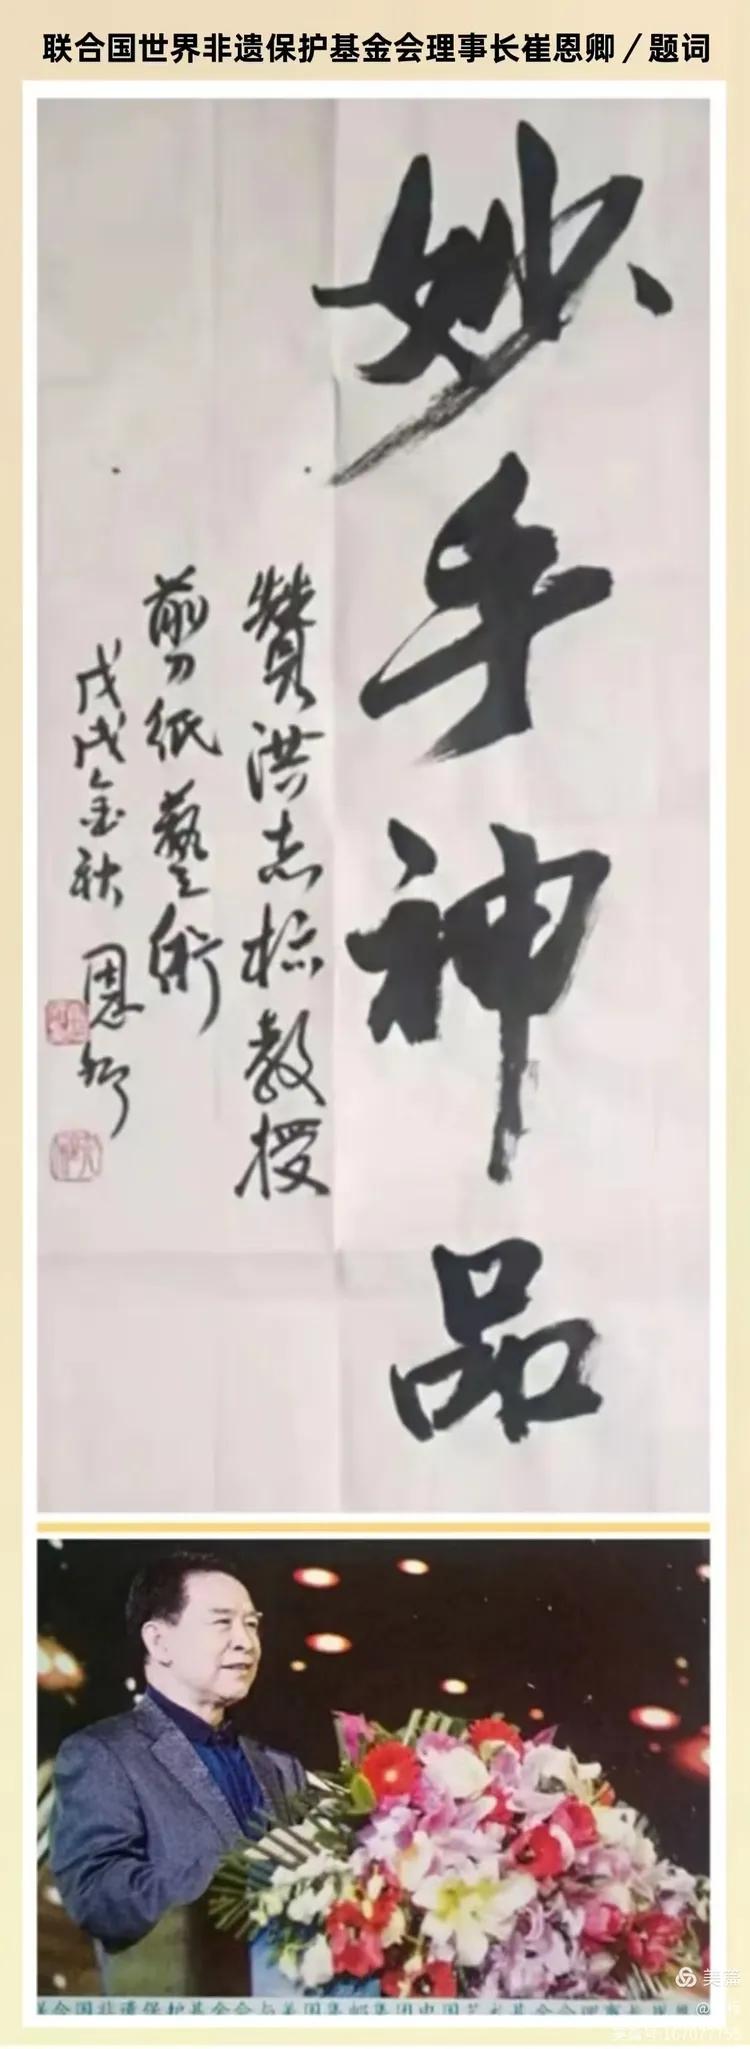 联合国世界非遗保护基金会理事长崔恩卿／题词
妙手神品
赞洪志标教授
剪纸艺術
戊戌金秋 恩卿
美篇